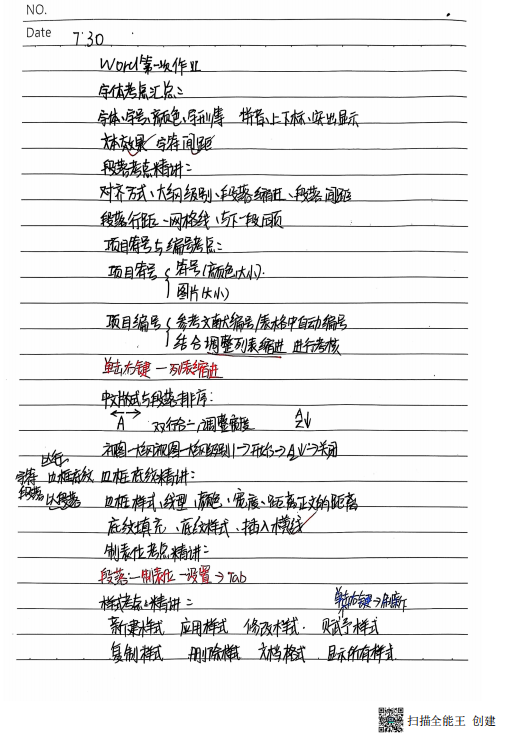 NO.
Date 7.30
Word第一次作业
字体考点汇总:
字体、字号、颜色、字形库 拼音、上下标、突出显示
文本效果 字符间距
段落考点精讲:
对齐方式、大纲级别、段落缩进、段落间距
段落行距、网格线、与下一段同页
项目符号与编号考点:
项目符号 { 符号(颜色大小).
图片(大小)
项目编号 { 参考文献编号/表格中自动编号
结合调整列表缩进 进行考核
单击右键 — 列表缩进
中文版式与段落排序:
A 双行合一,调整宽度 A Z↓
视图—大纲视图—大纲级别1→开始→AZ↓→关闭
以行
字符 边框底纹 边框底纹精讲:
段落 以段落 边框样式、线型、颜色、宽度、距离正文的距离
底纹填充、底纹样式、插入横线
制表位考点精讲:
段落:—制表位—设置→Tab
样式考点精讲: 单击右键→刷新
新建样式 应用样式 修改样式. 赋予样式
复制样式 删除样式 文档格式 显示所有样式
扫描全能王 创建